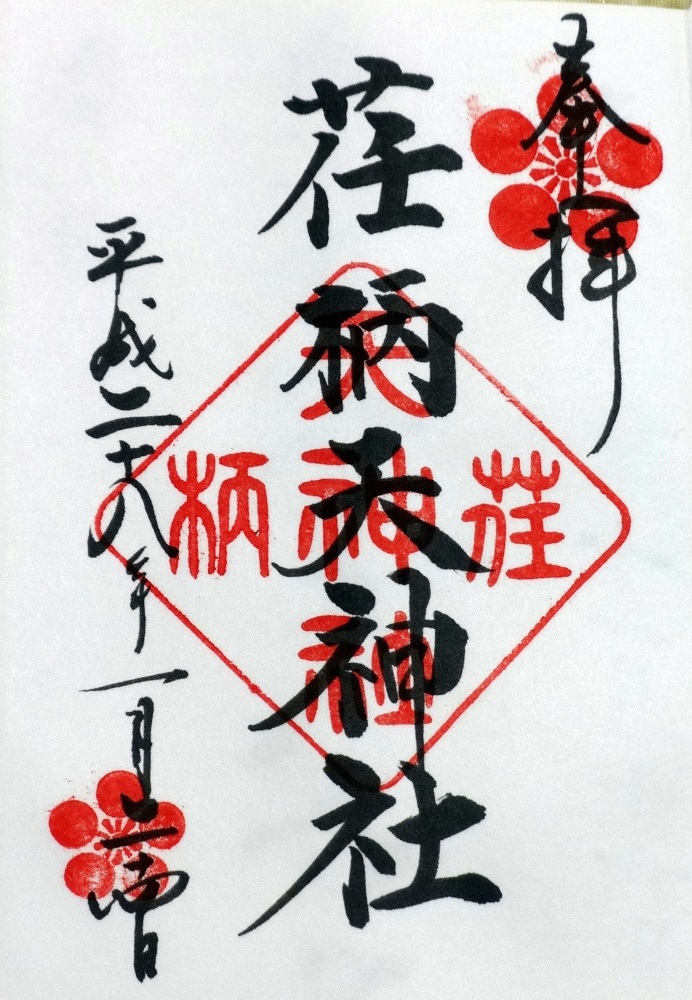 奉拝
荏柄天神社
平成二十八年一月二十四日
荏柄天神社